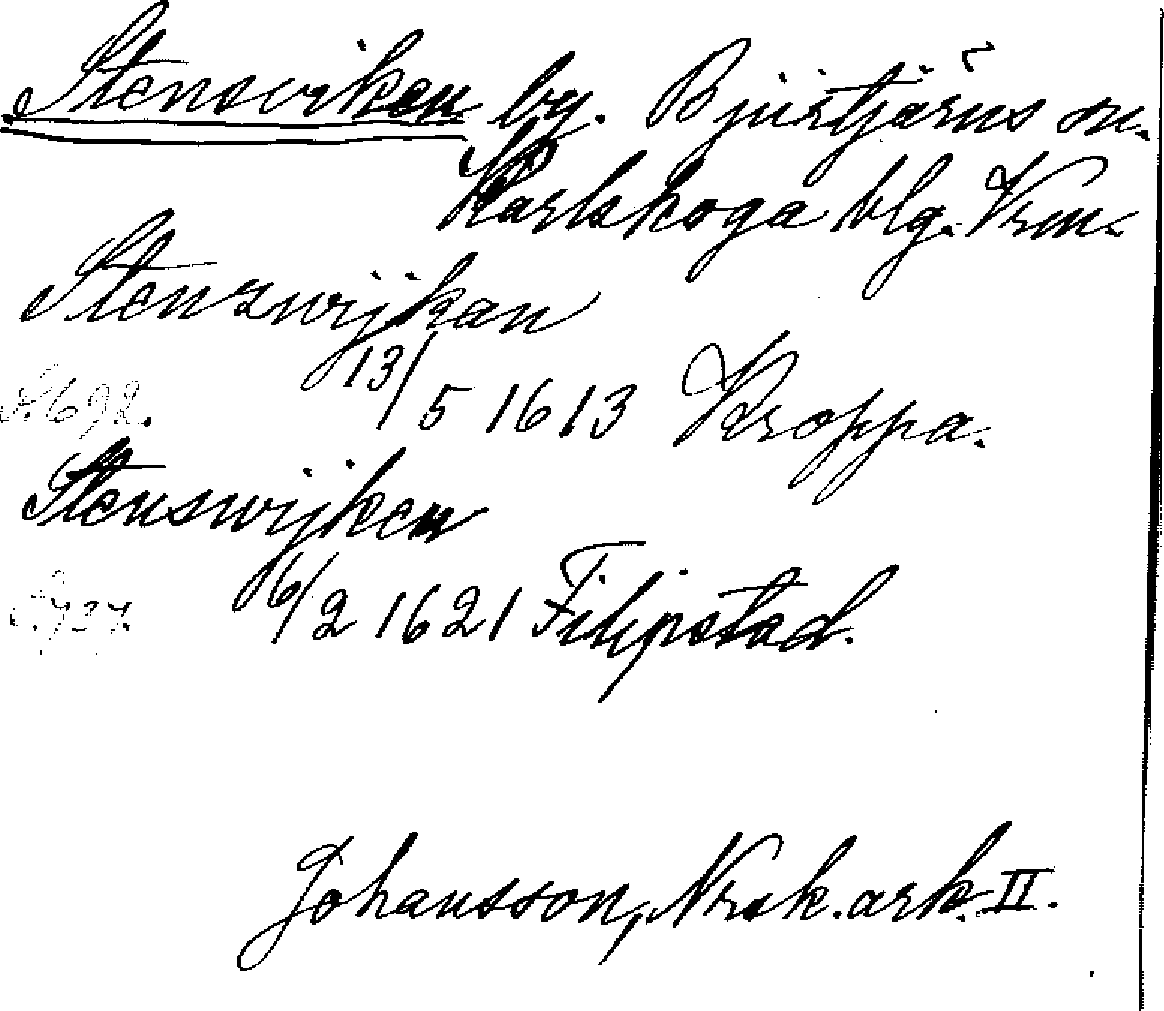 Stensviken by. Bjurtjärns sn.
Karlskoga blg. Vrm.
Stenzwijkan
S. 692. 13/5 1613 Kroppa.
Stenswijken
S. 727. 16/2 1621 Filipstad.
Johansson, Nrsk. ark. II.